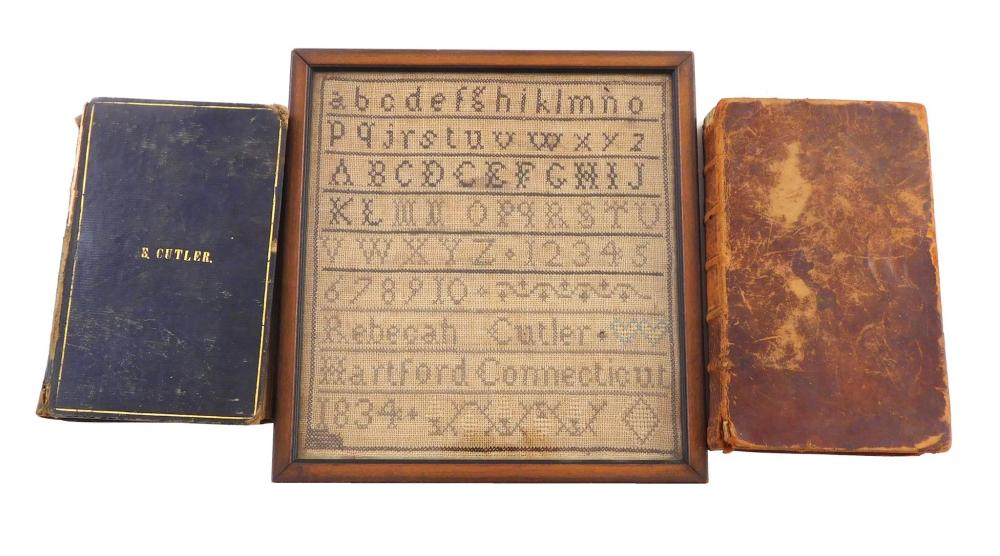 S. CUTLER.
a b c d e f g h i k l m n o
p q j r s t u v w x y z
A B C D C E F G H I J
K L M N O P q R S T U
V W X Y Z 1 2 3 4 5
6 7 8 9 10
Rebecah Cutler
Hartford Connecticut
1834